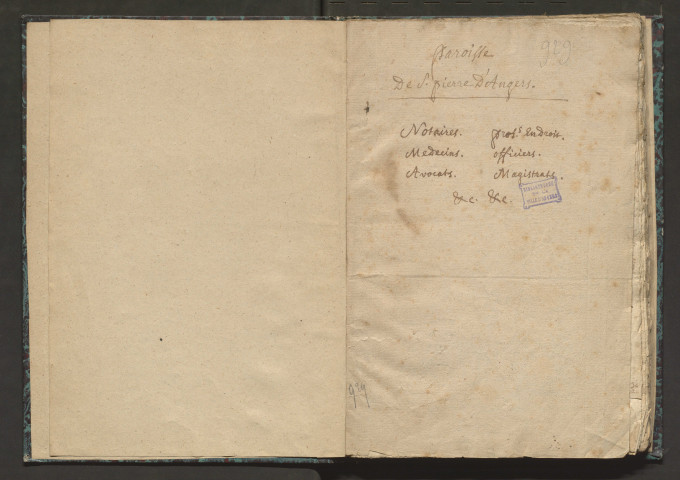 Paroisse
De St. pierre D'Angers.
Notaires. profs. En droit.
Medecins. officiers.
Avocats. Magistrats.
&c. &c.
929